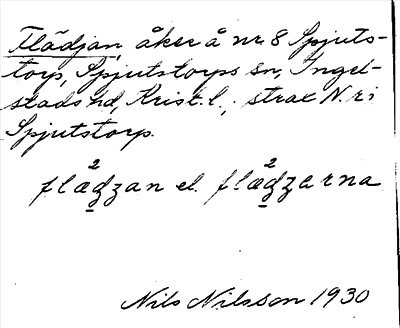 Flädjan, åker å nr 8 Spjuts-
torp, Spjutstorps sn, Ingel-
stads hd, Krist. l., strax N. r i
Spjutstorp.
2 2
flædzan el. flædzarna
Nils Nilsson 1930